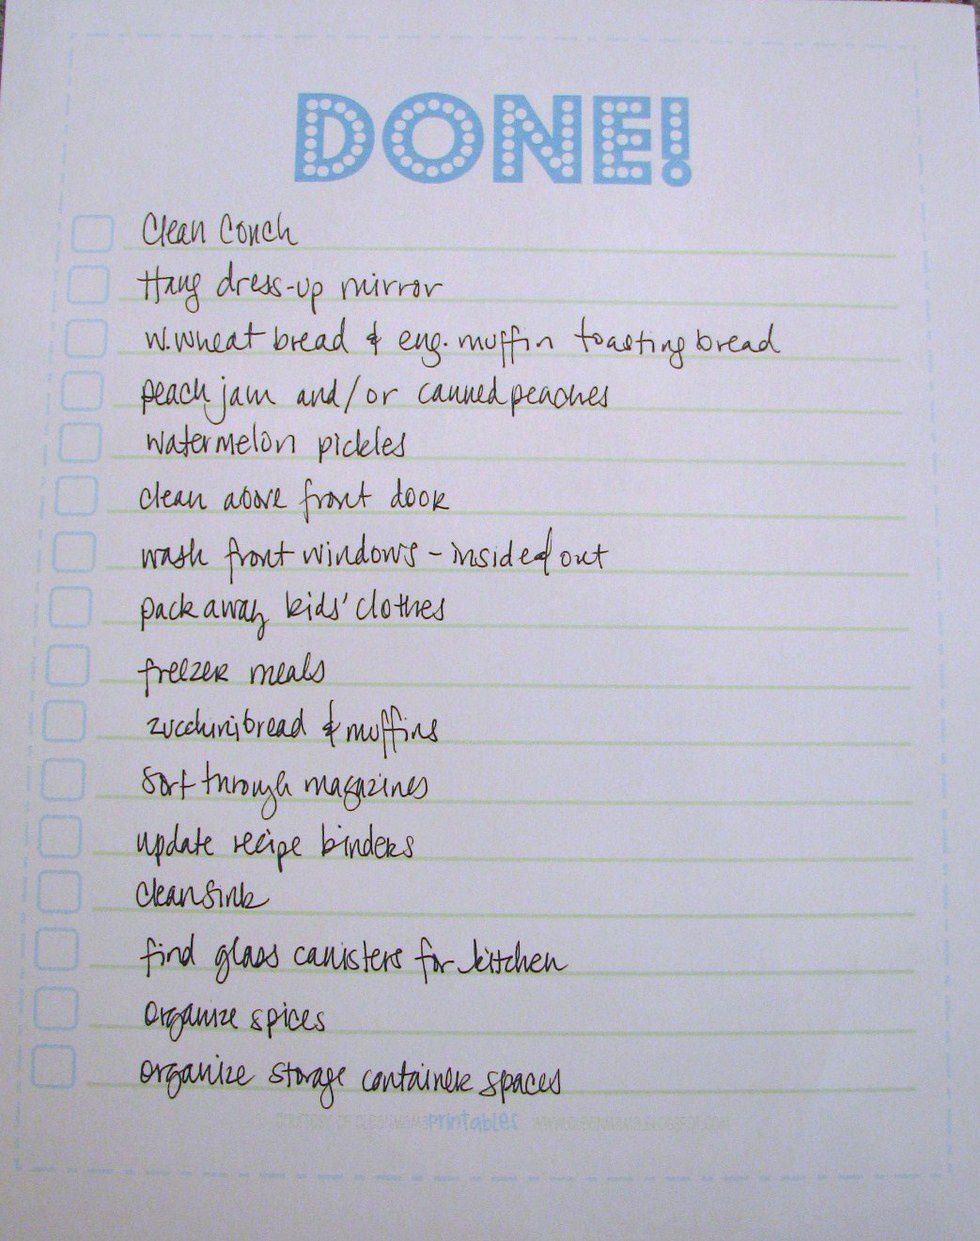 DONE!
Clean Couch
Hang dress-up mirror
w.wheat bread & eng. muffin toasting bread
peach jam and/or canned peaches
watermelon pickles
clean above front door
wash front windows - inside & out
pack away kids' clothes
freezer meals
zucchini bread & muffins
Sort through magazines
update recipe binders
Clean Sink
find glass canisters for kitchen
Organize spices
organize storage container spaces
printables